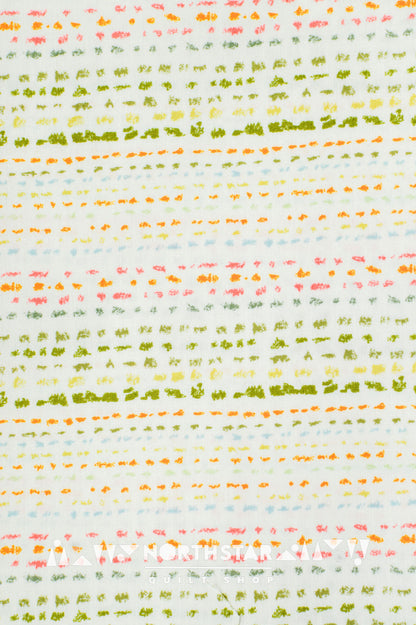 NORTHSTAR
QUILT SHOP